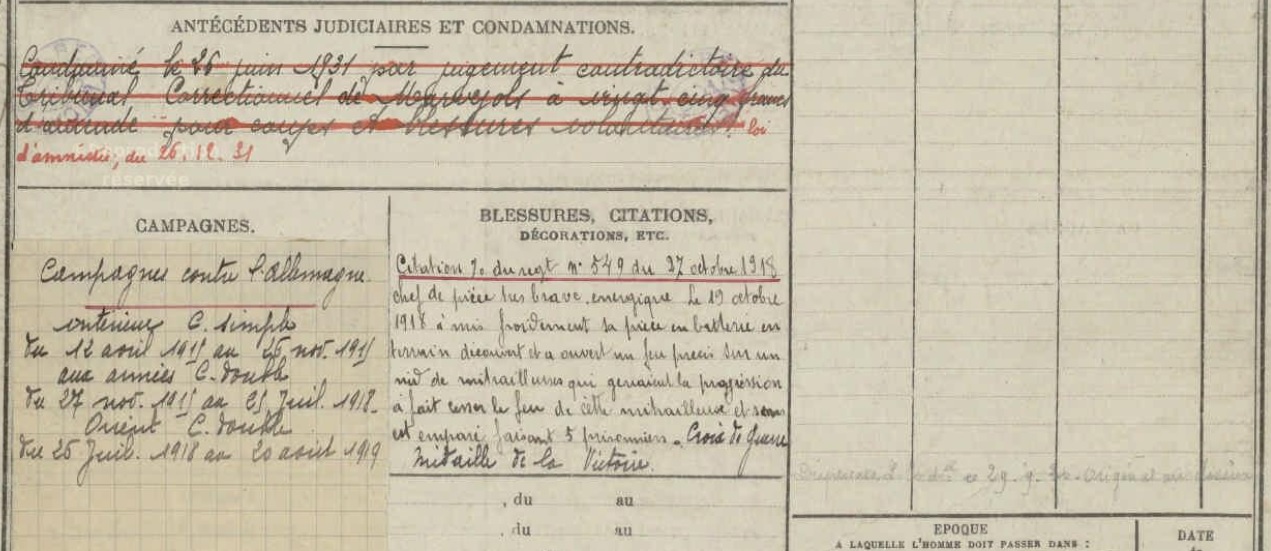 ANTÉCÉDENTS JUDICIAIRES ET CONDAMNATIONS.
Condamné le 26 juin 1931 par jugement contradictoire du
Tribunal Correctionnel de Marvejols à vingt cinq francs
d'amende pour coups et blessures volontaires. loi
d'amnistie, du 26.12.31
réservée
CAMPAGNES.
Campagnes contre l'Allemagne.
intérieur C. simple
du 12 avril 1915 au 26 nov. 1915
aux armées C. double
du 27 nov. 1915 au 25 Juil. 1918
Orient C. double
du 26 Juil. 1918 au 20 août 1919
BLESSURES, CITATIONS,
DÉCORATIONS, ETC.
Citation du regt n° 549 du 27 octobre 1918
chef de pièce très brave, énergique. Le 19 octobre
1918 à mis froidement sa pièce en batterie en
terrain découvert et a ouvert un feu précis sur un
nid de mitrailleuses qui genaient la progression
à fait cesser le feu de cette mitrailleuse et
est emparé faisant 5 prisonniers. Croix de Guerre
Médaille de la Victoire.
, du au
. du au
EPOQUE
A LAQUELLE L'HOMME DOIT PASSER DANS :
DATE